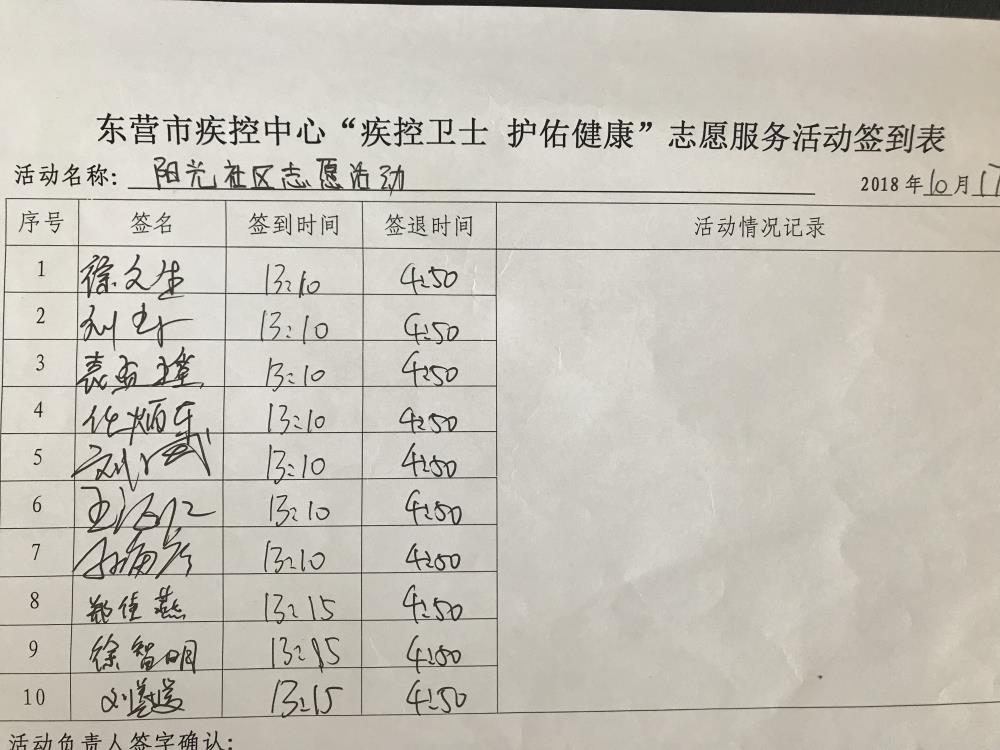 东营市疾控中心“疾控卫士 护佑健康”志愿服务活动签到表
活动名称: 阳光社区志愿活动 2018年10月17
序号 签名 签到时间 签退时间 活动情况记录
1 徐文生 13:10 4:50
2 刘 13:10 4:50
3 袁 13:10 4:50
4 任炳东 13:10 4:50
5 刘 13:10 4:50
6 王海仁 13:10 4:50
7 13:10 4:50
8 郑佳燕 13:15 4:50
9 徐智明 13:15 4:50
10 刘 13:15 4:50
活动负责人签字确认: